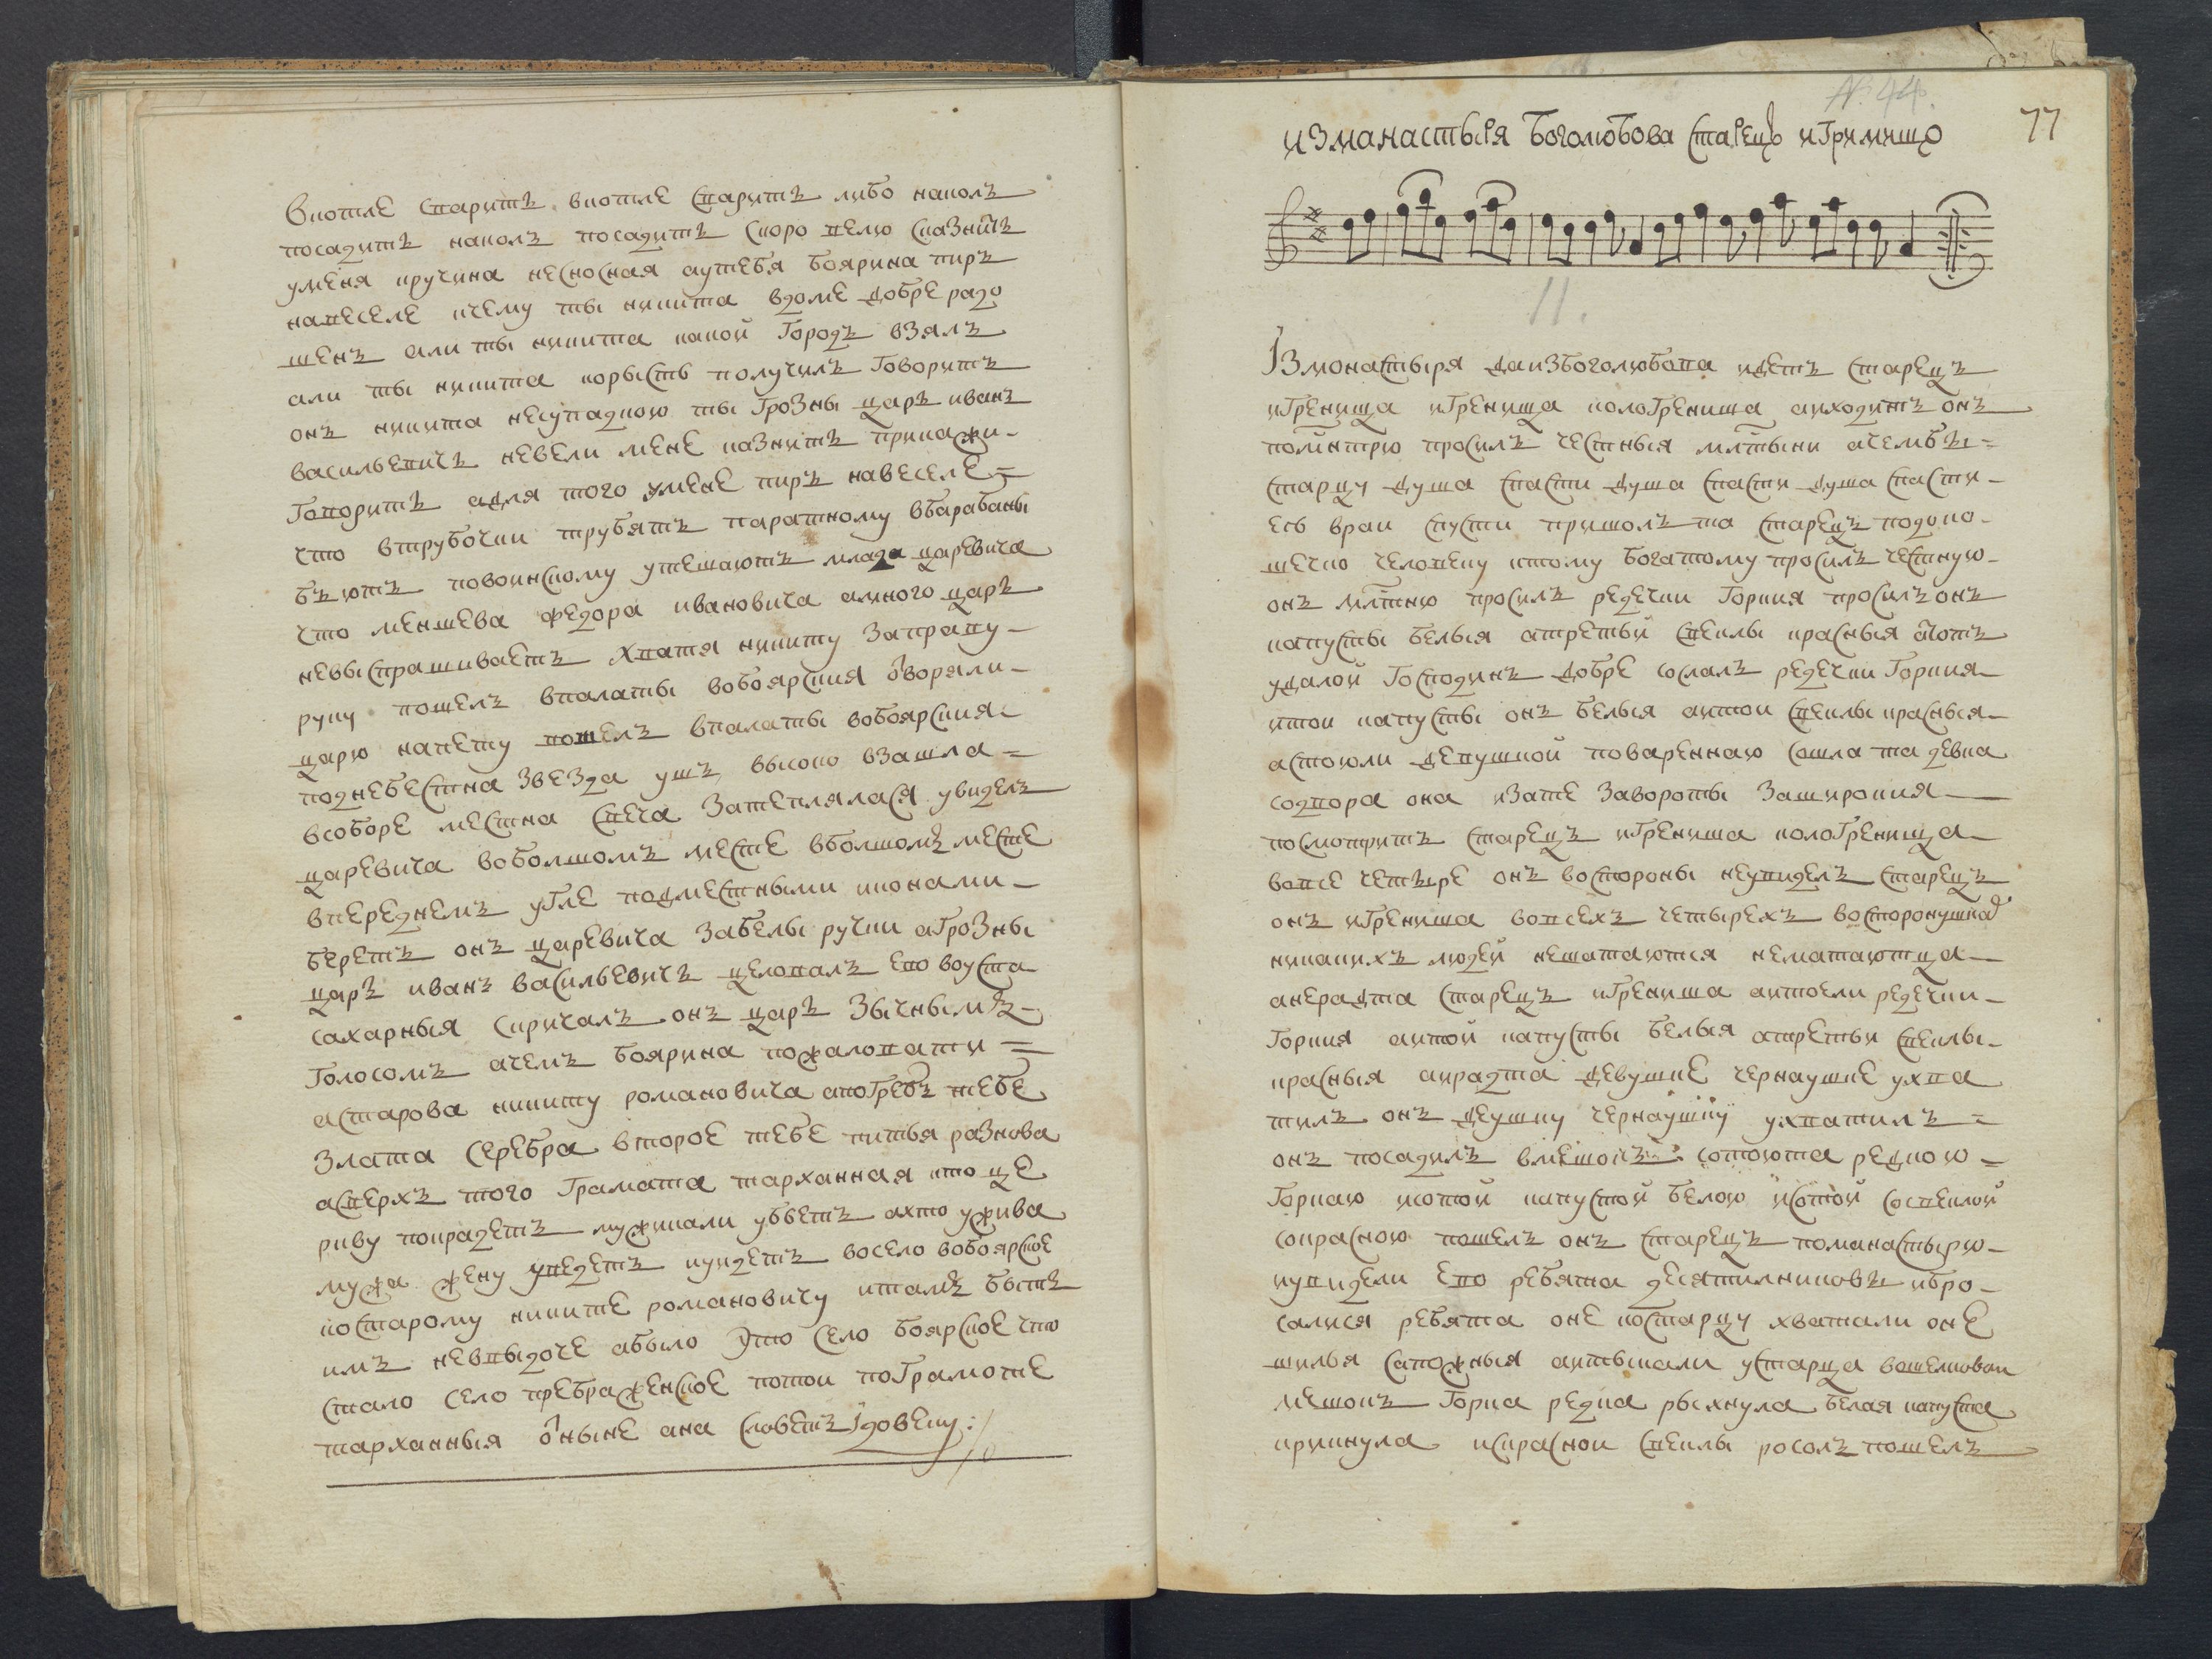 вкотле сваритъ вкотле сваритъ либо наколъ
посадитъ наколъ посадитъ скоро велю сказнить
уменя кручина несносная аутебя боярина пиръ
навеселе кчему ты никита вдоме добре радо
шенъ али ты никита какой городъ взялъ
али ты никита корысть получилъ говоритъ
онъ никита несупадкою ты грозны царъ иванъ
васильевичъ невели мене казнитъ прикажи
говоритъ адля того умене пиръ навеселе
что втрубочки трубятъ паратному вбарабаны
бъютъ повоинскому утешаютъ млада царевича
что меншева федора ивановича амного царъ
невыспрашиваетъ хватя никиту заправу
руку пошелъ впалаты вобоярския отворяли
царю напету пошелъ впалаты вобоярския
поднебестна звезда ужъ высоко взашла
всоборе местна свеча затеплялася увиделъ
царевича воболшомъ месте вболшомъ месте
впереднемъ угле подместными иконами
беретъ онъ царевича забелы ручки агрозны
царъ иванъ васильевичъ целовалъ ево воуста
сахарныя скричалъ онъ царъ зычнымъ
голосомъ ачемъ боярина пожаловати
астарова никиту романовича апогребъ тебе
злата серебра второе тебе питья разнова
асверхъ того грамата тарханная кто це
ркву покрадетъ мужикали убьетъ акто ужива
мужа жену уведетъ иуидетъ восело вобоярское
костарому никите романовичу итамъ быть
имъ невыдоче абыло это село боярское что
стало село пребраженское потои пограмоте
тарханныя отныне ана словетъ ідовеку
№ 44.
77
изманастыря боголюбова старецъ игримищо
11.
Ізмонастыря даизбоголюбова идетъ старецъ
игренища игренища кологренища аиходитъ онъ
поманстрю просилъ честныя млтыни ачембъ
старцу душа спасти душа спасти душа спасти
евъ враи спусти пришолъ та старецъ подоко
шечко человеку ктому богатому просилъ честную
онъ млтню просилъ редечки горкия просилъ онъ
капусты белыя атретьи свеклы красныя атотъ
удалой господинъ добре сослалъ редечки горкия
итои капусты онъ белыя аитои свеклы красныя
астоюли девушкой поваренною сошла та девка
содвора она изате заворотъ заширокия
посмотритъ старецъ игренища кологренища
вовсе четыре онъ востороны неувиделъ старецъ
онъ игренища вовсехъ четырехъ восторонушкахъ
никакихъ людей нешатаются нематаютца
анерадта старецъ игренища аитоели редечки
горкия аитой капусты белыя атретьи свеклы
красныя аирадта девушке чернаушке ухва
тилъ онъ деушку чернаушку ухватилъ
онъ посадилъ вмешокъ сотоюта редкою
горкаю исотой капустой белою исотой сосвеклой
сокрасною пошелъ онъ старецъ поманастырю
иувидели ево ребята десятилниковъ ибро
салися ребята оне костарцу хватали оне
шилья сапожныя аитыкали устарца вошелковаи
мешокъ горка редка рыхнула белая капуста
крикнула искраснои свеклы росолъ пошелъ